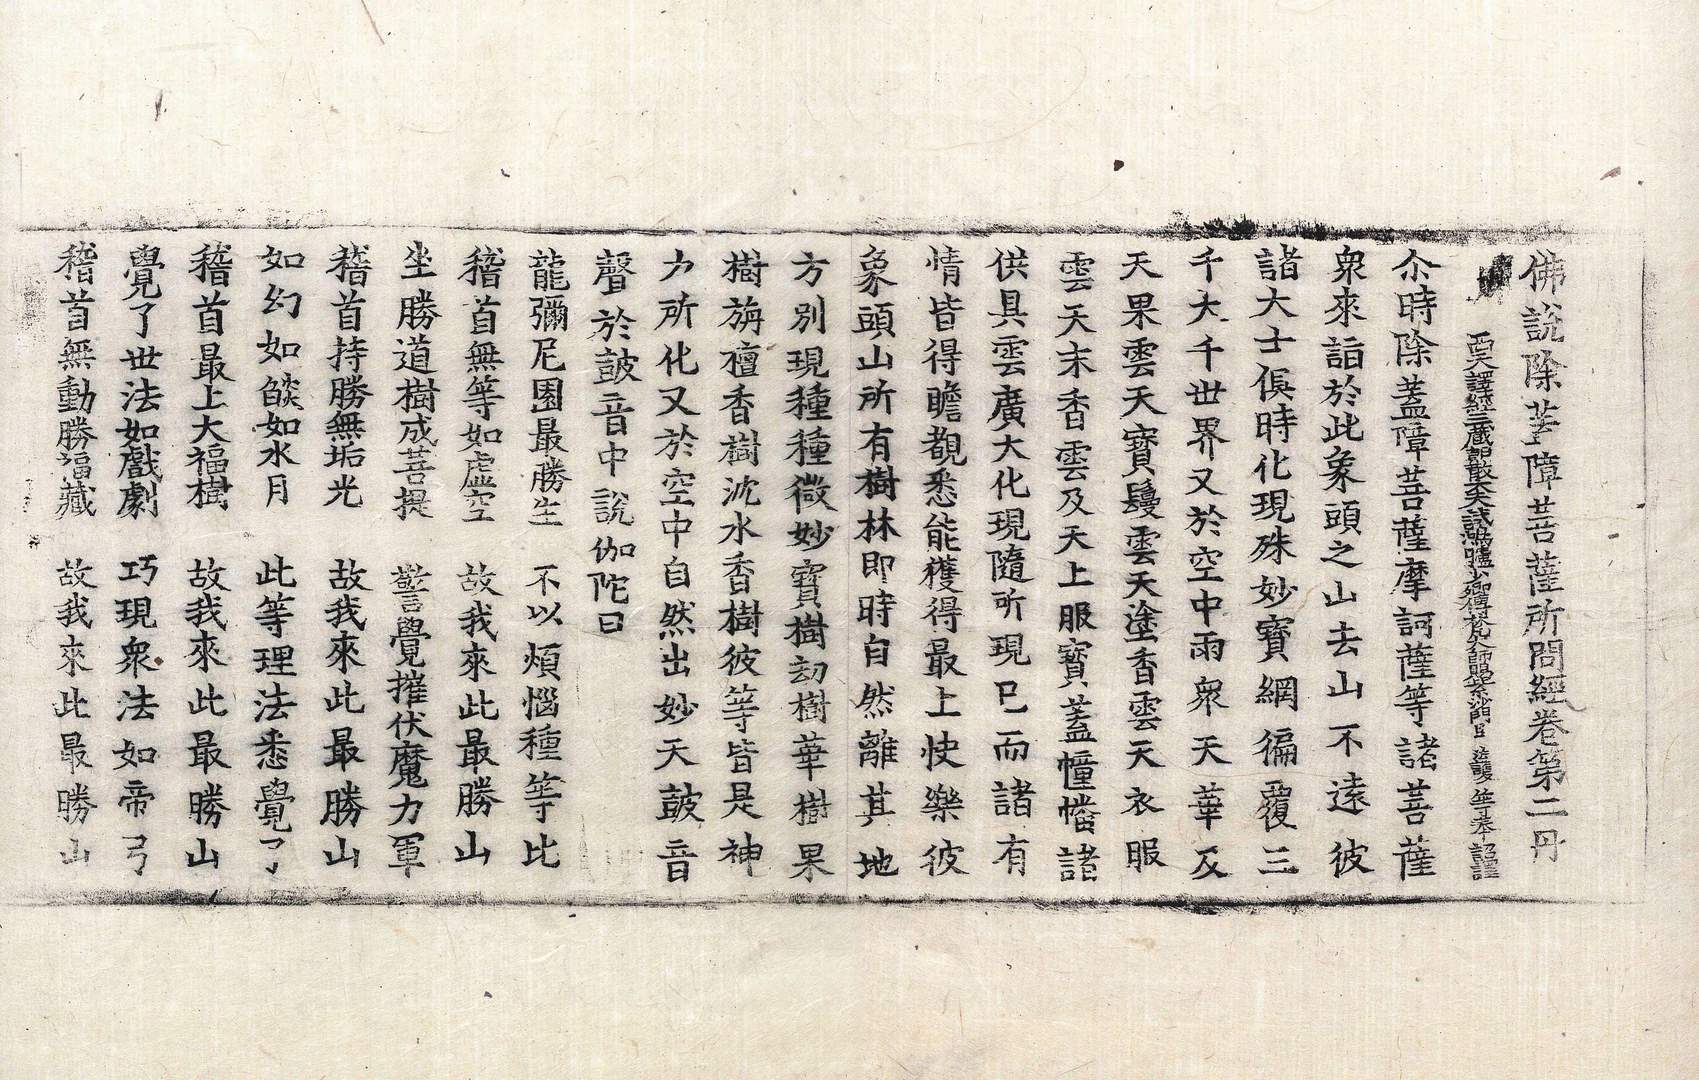 佛說除蓋障菩薩所問經卷第二 丹
西天譯經三藏朝散大夫試鴻臚少卿傳梵大師賜紫沙門臣法護等奉 詔譯
尒時除蓋障菩薩摩訶薩等諸菩薩
衆來詣於此象頭之山去山不遠彼
諸大士俱時化現殊妙寶網徧覆三
千大千世界又於空中雨衆天華及
天果雲天寶鬘雲天塗香雲天衣服
雲天末香雲及天上服寶蓋幢幡諸
供具雲廣大化現隨所現已而諸有
情皆得瞻覩悉能獲得最上快樂彼
象頭山所有樹林即時自然離其地
方別現種種微妙寶樹劫樹華樹果
樹旃檀香樹沈水香樹彼等皆是神
力所化又於空中自然出妙天鼓音
聲於鼓音中說伽陀曰
龍彌尼園最勝生 不以煩惱種等比
稽首無等如虛空 故我來此最勝山
坐勝道樹成菩提 警覺摧伏魔力軍
稽首持勝無垢光 故我來此最勝山
如幻如燄如水月 此等理法悉覺了
稽首最上大福樹 故我來此最勝山
覺了世法如戲劇 巧現衆法如帝弓
稽首無動勝福藏 故我來此最勝山